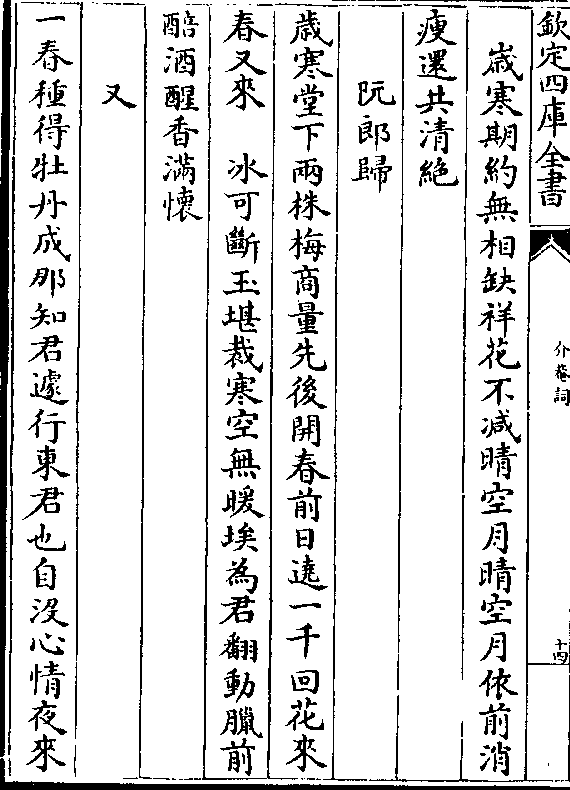 欽定四庫全書
介菴詞
十四
歲寒期約無相缺祥花不减晴空月晴空月依前消
瘦還共清絶
阮郎歸
歲寒堂下兩株梅商量先後開春前日遶一千回花來
春又來　冰可斷玉堪裁寒空無暖埃為君翻動臘前
醅酒醒香滿懷
又
一春種得牡丹成那知君遽行東君也自没心情夜來